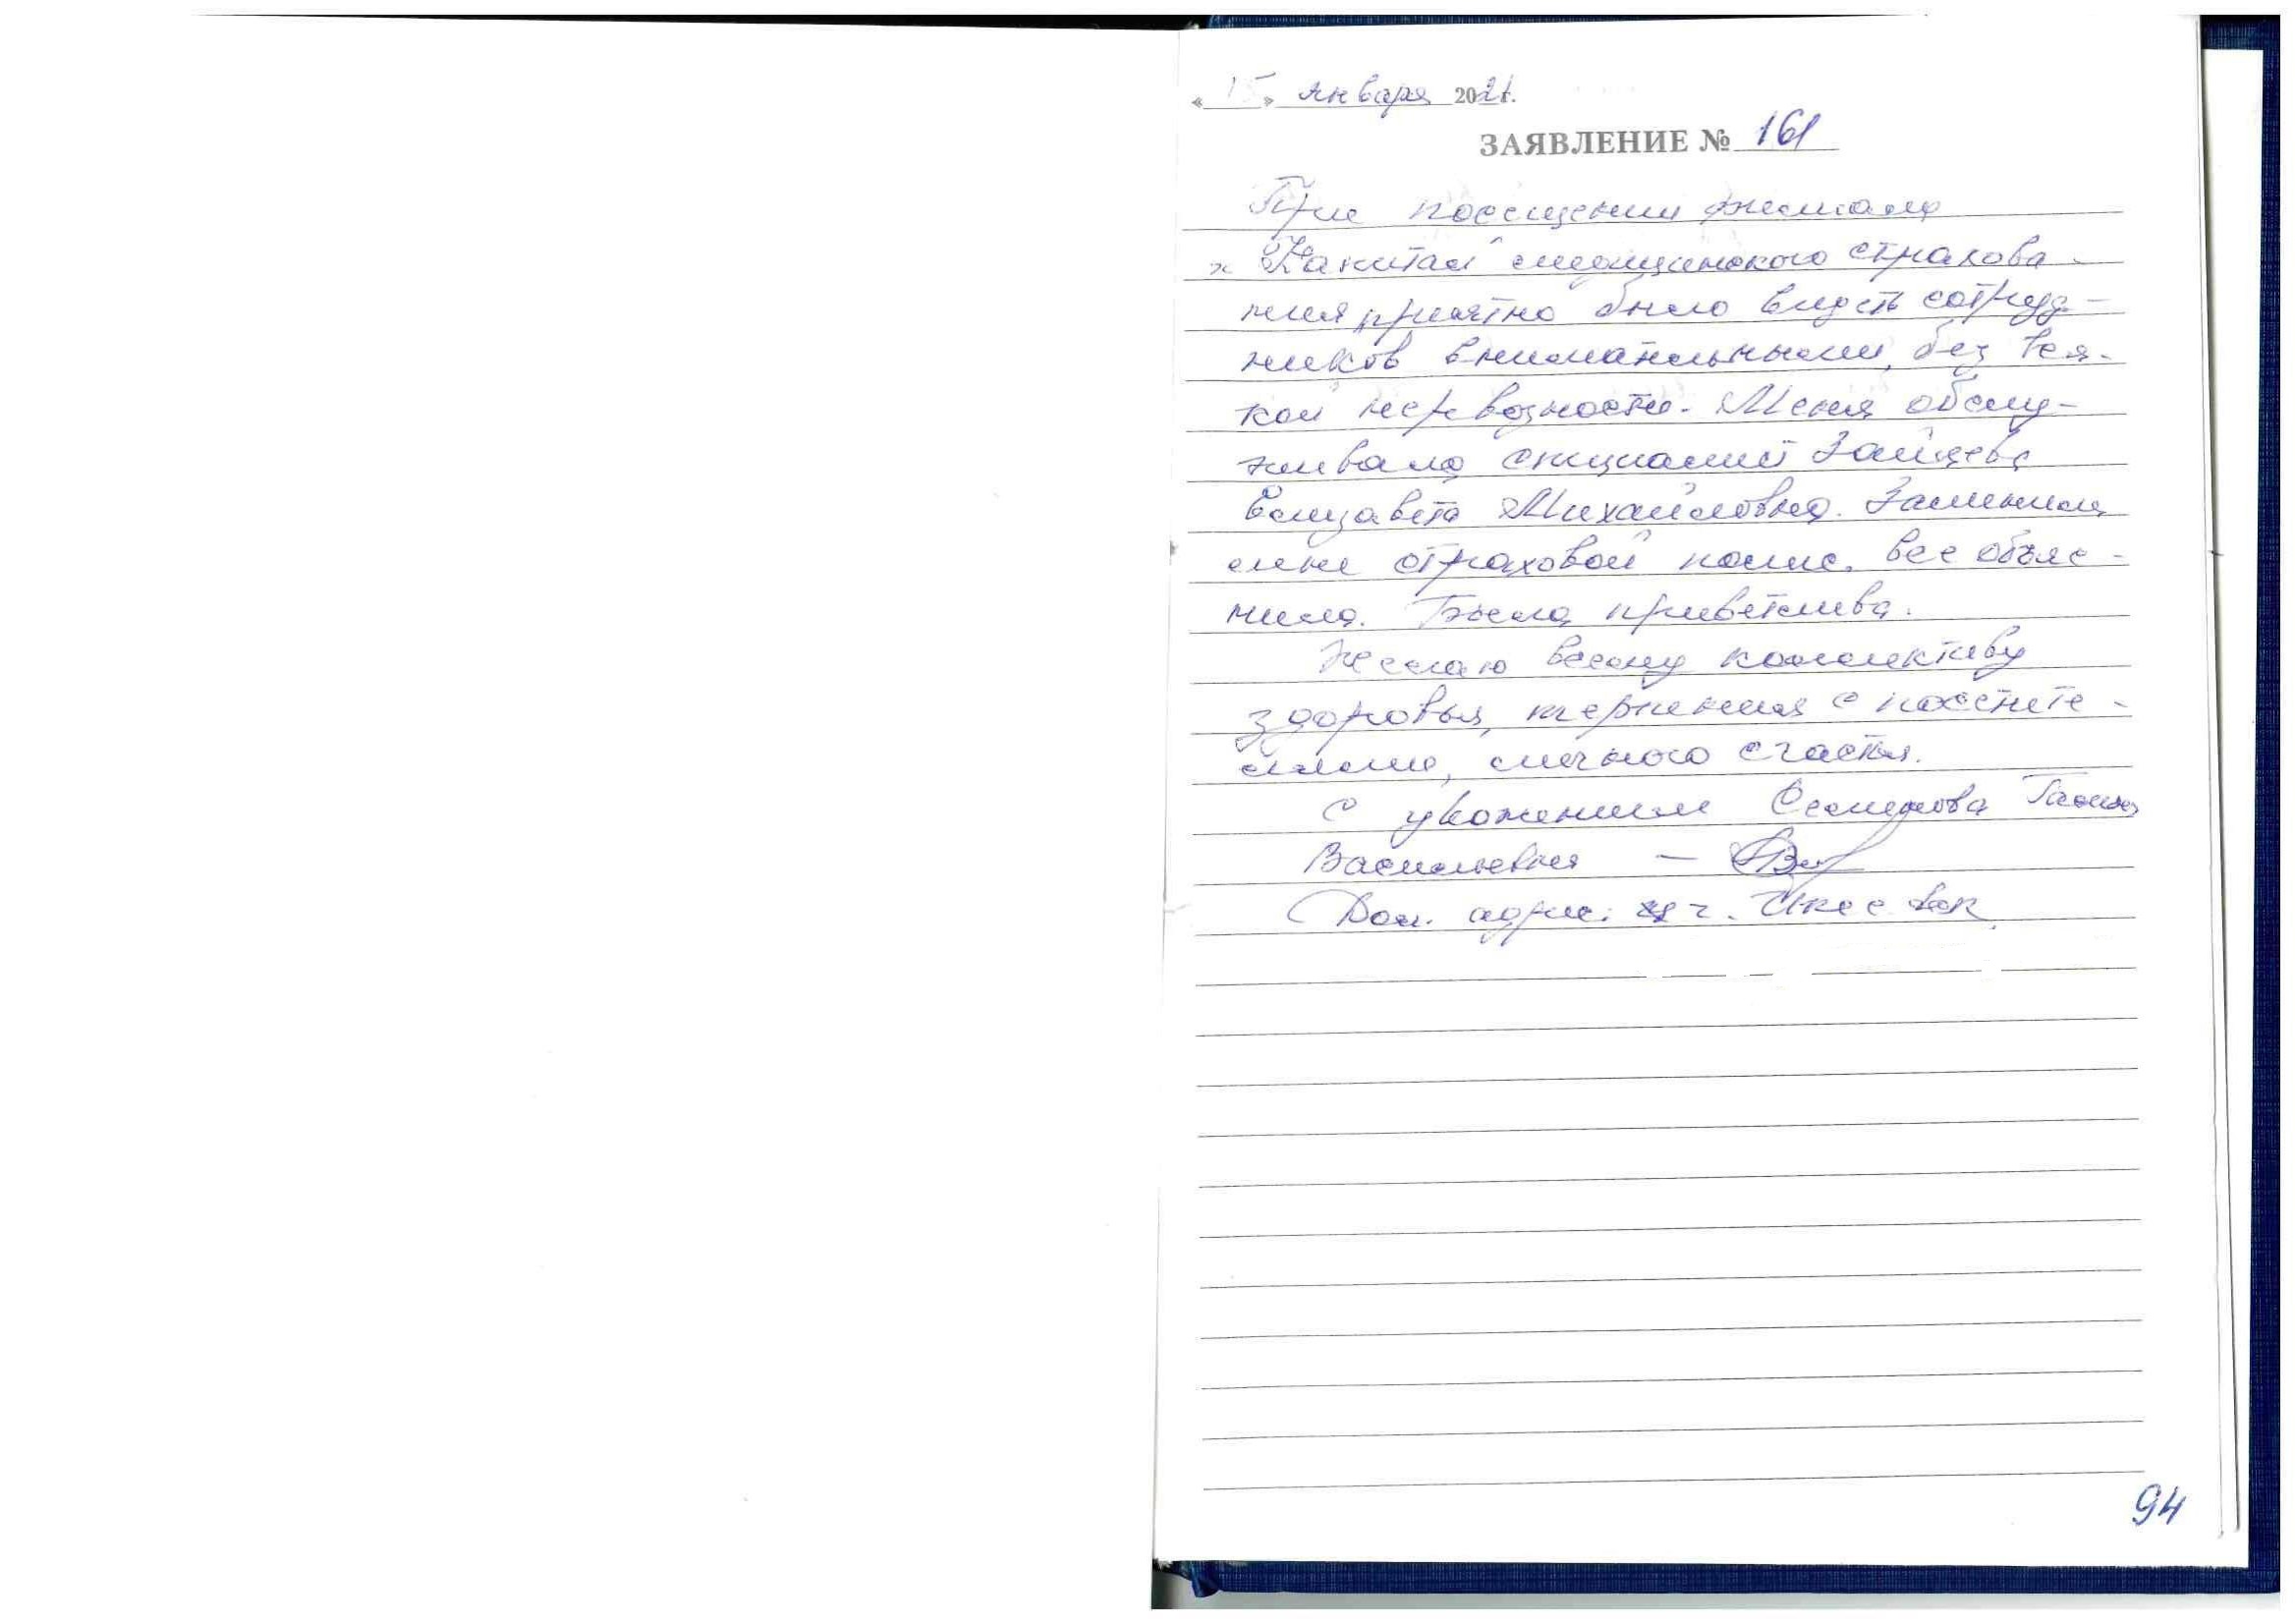 «15» января 2021г.
ЗАЯВЛЕНИЕ № 161
При посещении филиала
"Капитал медицинского страхова-
ния приятно было видеть сотруд-
ников внимательными, без вся-
кой нервозности. Меня обслу-
живала специалист Зайцева
Елизавета Михайловна. Заменила
мне страховой полис. Все объяс-
нила. Была приветлива.
Желаю всему коллективу
здоровья, терпения с посетите-
лями, личного счастья.
С уважением Галина
Васильевна —
Дом. адрес: г. Ижевск
94